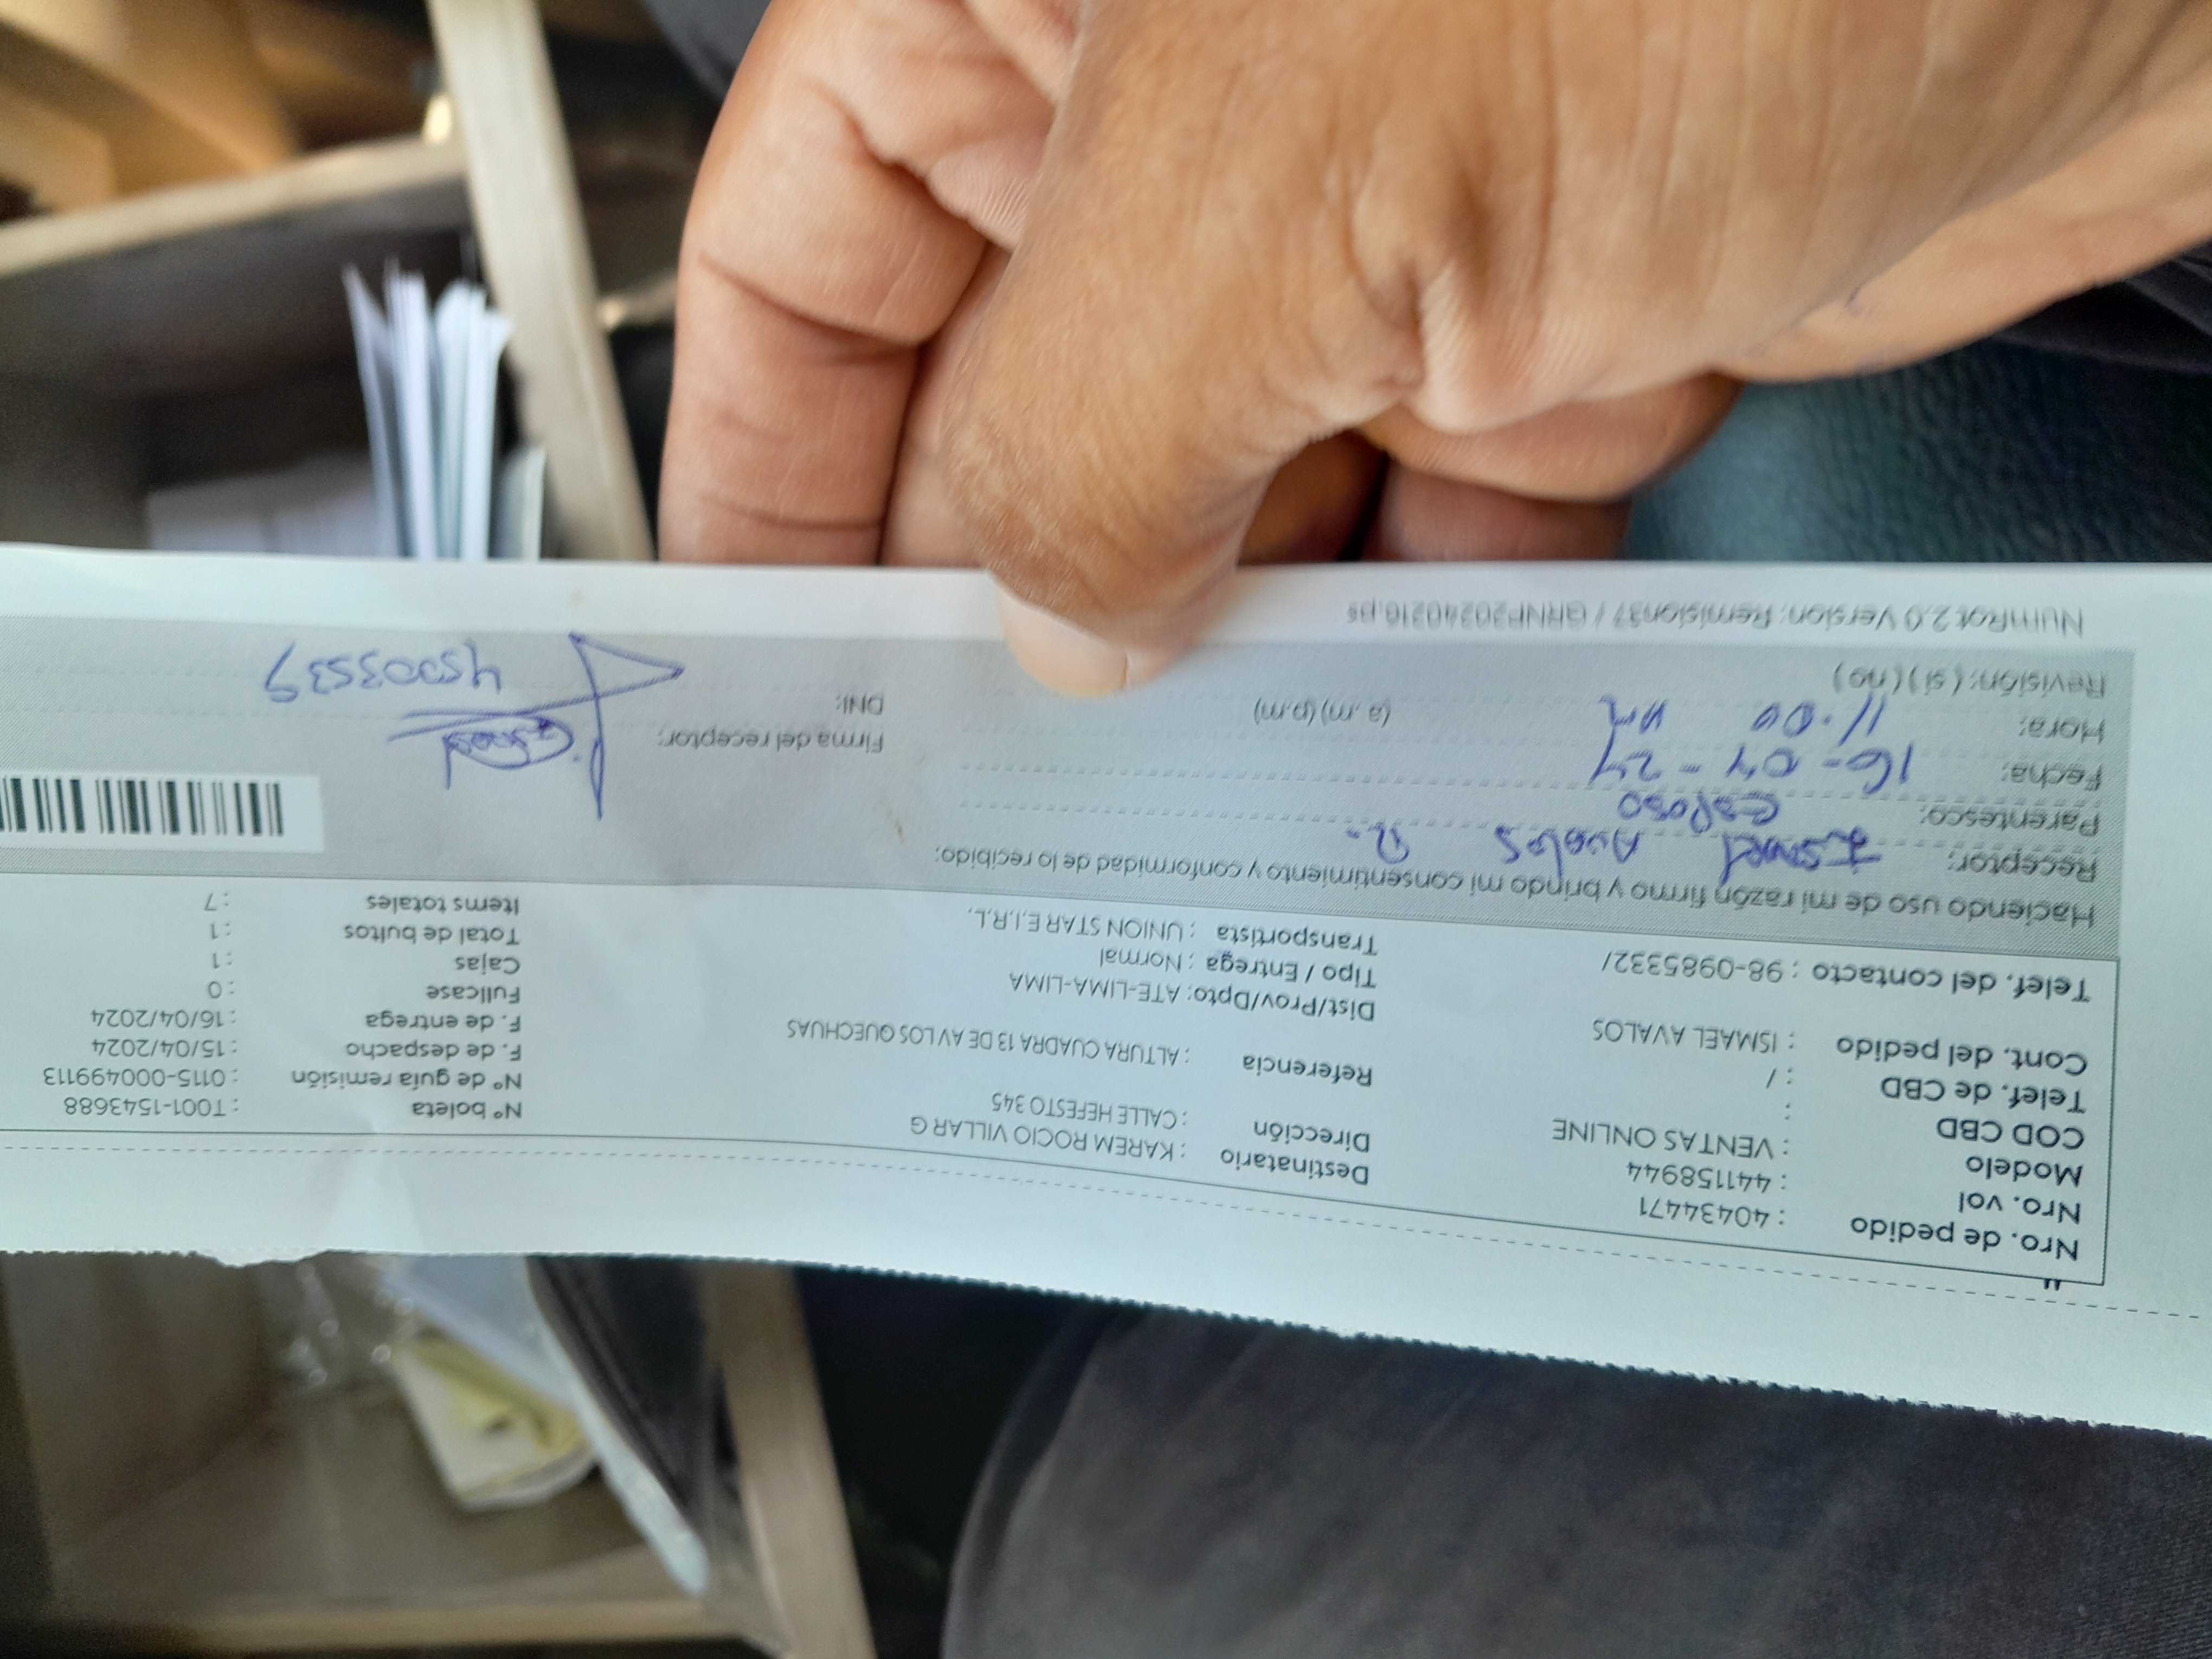 Nro. de pedido : 40434471
Nro. vol : 441158944
Modelo : VENTAS ONLINE
COD CBD :
Telef. de CBD : /
Cont. del pedido : ISMAEL AVALOS
Telef. del contacto : 98-0985332/
Destinatario : KAREM ROCIO VILLAR G
Dirección : CALLE HEFESTO 345
Referencia : ALTURA CUADRA 13 DE AV LOS QUECHUAS
Dist/Prov/Dpto: ATE-LIMA-LIMA
Tipo / Entrega : Normal
Transportista : UNION STAR E.I.R.L.
N° boleta : T001-1543688
N° de guía remisión : 0115-000499113
F. de despacho : 15/04/2024
F. de entrega : 16/04/2024
Fullcase : 0
Cajas : 1
Total de bultos : 1
Items totales : 7
Haciendo uso de mi razón firmo y brindo mi consentimiento y conformidad de lo recibido:
Receptor: Ismael Avalos R.
Parentesco: esposo
Fecha: 16-04-24
Hora: 11:00 (a.m) (p.m)
Revisión: (si) (no)
Firma del receptor:
DNI: 45003539
NumRot 2.0 Version: Remision37 / GRNP20240216.ps